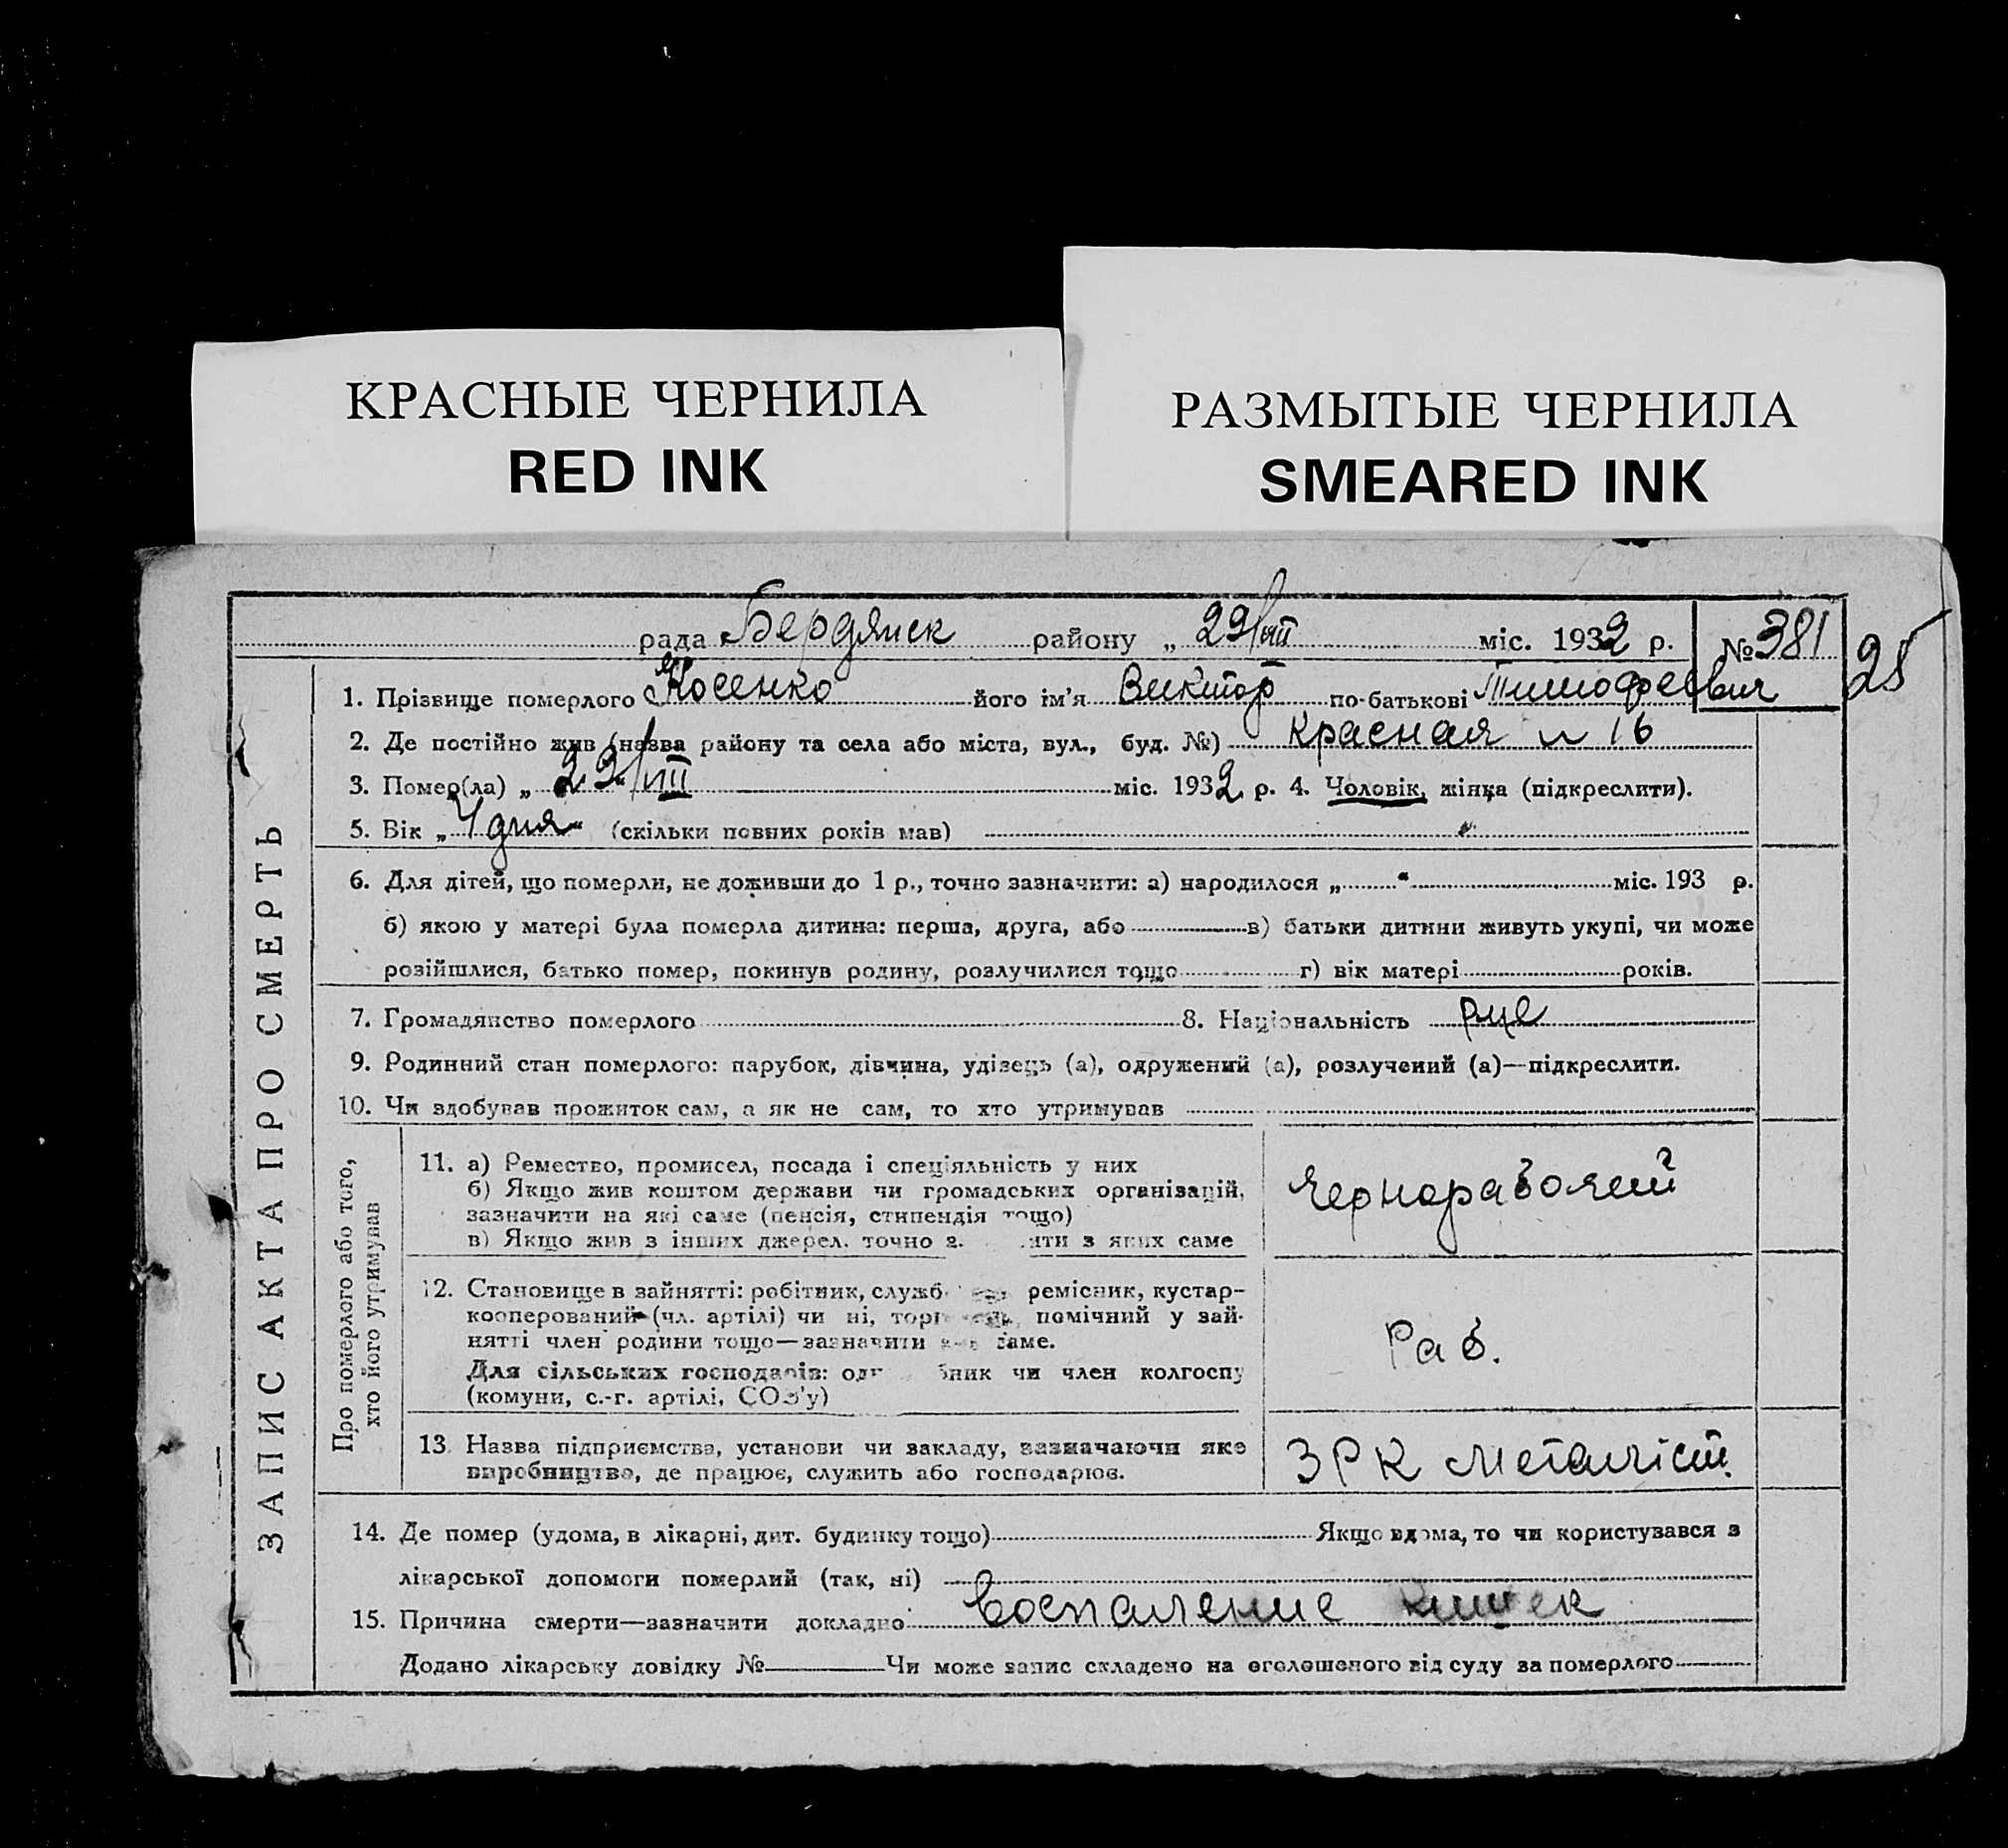 КРАСНЫЕ ЧЕРНИЛА
RED INK
РАЗМЫТЫЕ ЧЕРНИЛА
SMEARED INK
рада Бердянск району „ 29/VIII міс. 1932 р. № 381 25
1. Прізвище померлого Косенко його ім'я Виктор по-батькові Тимофеевич
2. Де постійно жив (назва району та села або міста, вул., буд. №) Красная № 16
3. Помер(ла) „ 29/VIII міс. 1932 р. 4. Чоловік, жінка (підкреслити).
5. Вік „ 4 дня " (скільки повних років мав)
6. Для дітей, що померли, не доживши до 1 р., точно зазначити: а) народилося „ " міс. 193 р.
б) якою у матері була померла дитина: перша, друга, або в) батьки дитини живуть укупі, чи може
розійшлися, батько помер, покинув родину, розлучилися тощо г) вік матері років.
7. Громадянство померлого 8. Національність рус
9. Родинний стан померлого: парубок, дівчина, удівець (а), одружений (а), розлучений (а)—підкреслити.
10. Чи здобував прожиток сам, а як не сам, то хто утримував
11. а) Ремество, промисел, посада і спеціяльність у них
б) Якщо жив коштом держави чи громадських організацій,
зазначити на які саме (пенсія, стипендія тощо)
в) Якщо жив з інших джерел, точно з яких саме
Чернорабочий
12. Становище в зайнятті: робітник, службо ремісник, кустар-
кооперований (чл. артілі) чи ні, помічний у зай-
нятті член родини тощо—зазначити саме.
Для сільських господарів: чи член колгоспу
(комуни, с.-г. артілі, СОЗ'у)
Раб.
13. Назва підприємства, установи чи закладу, зазначаючи яке
виробництво, де працює, служить або господарює.
ЗРК Металіст.
14. Де помер (удома, в лікарні, дит. будинку тощо) Якщо вдома, то чи користувався з
лікарської допомоги померлий (так, ні)
15. Причина смерти—зазначити докладно Воспаление кишек
Додано лікарську довідку № Чи може запис складено на оголошеного від суду за померлого
ЗАПИС АКТА ПРО СМЕРТЬ
Про померлого або того,
хто його утримував